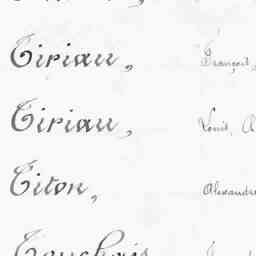 Tiriau, François,
Tiriau, Louis, A
Titon, Alexandre